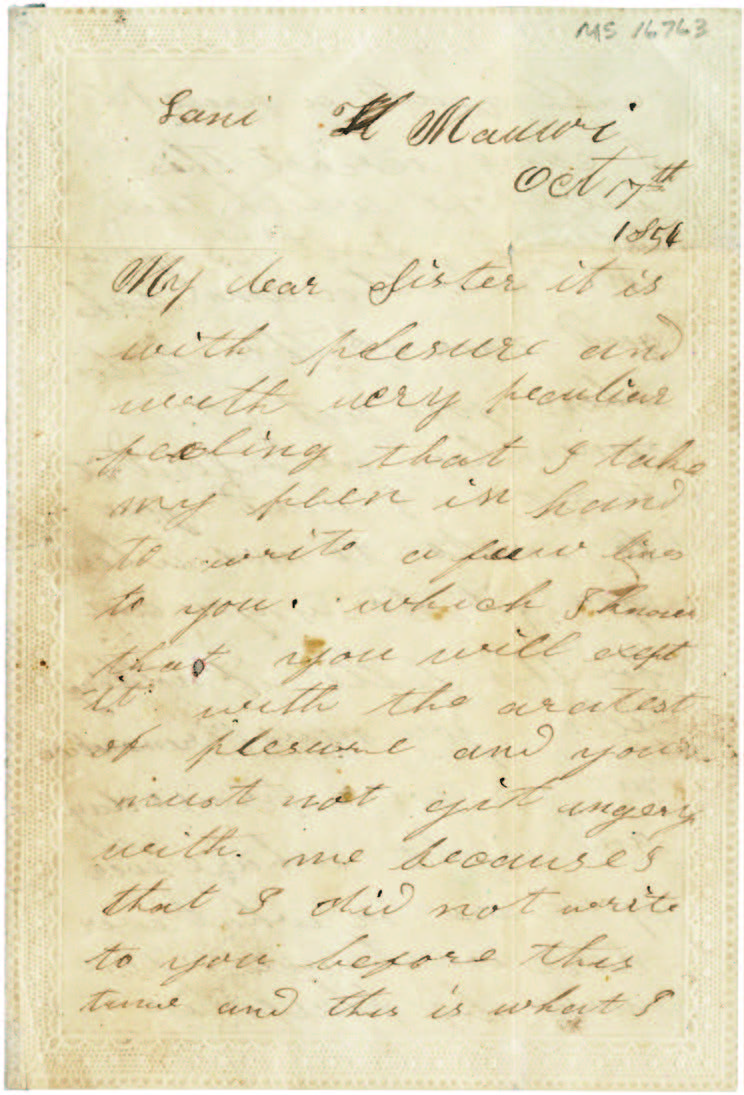 MS 16763
Oct 17th
1854
My dear Sister it is
with plesure and
with very peculiar
feeling that I take
my peen in hand
to write a few lines
to you. which I know
that you will exept
it with the
of plesure and you
must not git angery
with me because
that I did not write
to you before this
time and this is what I